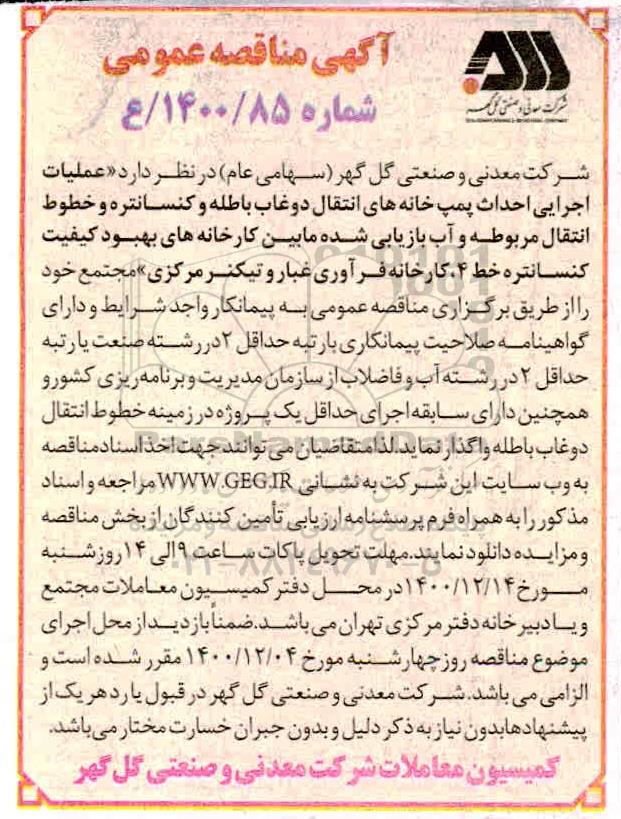 آگهی مناقصه عمومی
شماره ۱۴۰۰/۸۵/ع
شرکت معدنی و صنعتی گل گهر
شرکت معدنی و صنعتی گل گهر (سهامی عام) در نظر دارد «عملیات
اجرایی احداث پمپ خانه های انتقال دوغاب باطله و کنسانتره و خطوط
انتقال مربوطه و آب بازیابی شده مابین کارخانه های بهبود کیفیت
کنسانتره خط ۴، کارخانه فرآوری غبار و تیکنر مرکزی» مجتمع خود
را از طریق برگزاری مناقصه عمومی به پیمانکار واجد شرایط و دارای
گواهینامه صلاحیت پیمانکاری با رتبه حداقل ۲ در رشته صنعت یا رتبه
حداقل ۲ در رشته آب و فاضلاب از سازمان مدیریت و برنامه ریزی کشور و
همچنین دارای سابقه اجرای حداقل یک پروژه در زمینه خطوط انتقال
دوغاب باطله واگذار نماید. لذا متقاضیان می توانند جهت اخذ اسناد مناقصه
به وب سایت این شرکت به نشانی WWW.GEG.IR مراجعه و اسناد
مذکور را به همراه فرم پرسشنامه ارزیابی تأمین کنندگان از بخش مناقصه
و مزایده دانلود نمایند. مهلت تحویل پاکات ساعت ۹ الی ۱۴ روز شنبه
مورخ ۱۴۰۰/۱۲/۱۴ در محل دفتر کمیسیون معاملات مجتمع
و یا دبیرخانه دفتر مرکزی تهران می باشد. ضمناً بازدید از محل اجرای
موضوع مناقصه روز چهارشنبه مورخ ۱۴۰۰/۱۲/۰۴ مقرر شده است و
الزامی می باشد. شرکت معدنی و صنعتی گل گهر در قبول یا رد هر یک از
پیشنهادها بدون نیاز به ذکر دلیل و بدون جبران خسارت مختار می باشد.
کمیسیون معاملات شرکت معدنی و صنعتی گل گهر
ParsNamadData
۰۲۱-۸۸۳۴۹۶۷۰-۵